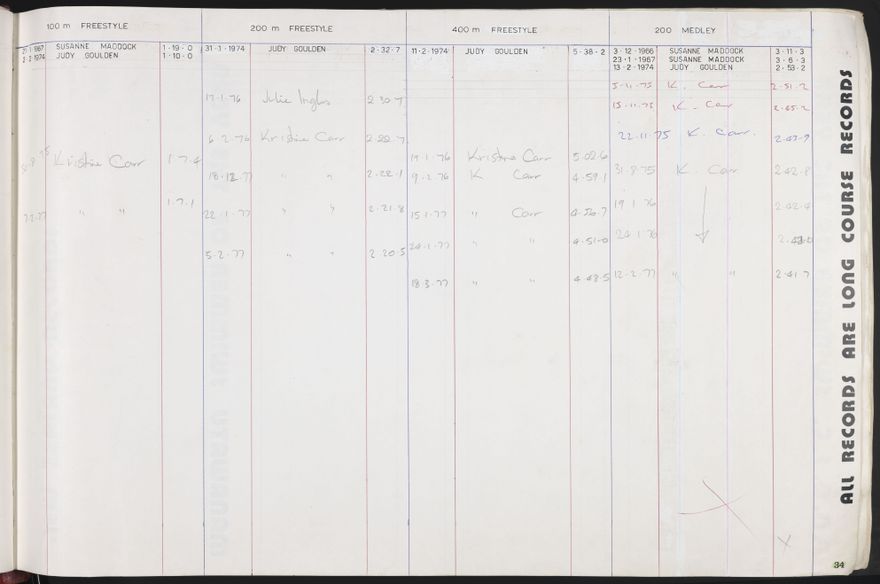 100 m FREESTYLE 200 m FREESTYLE 400 m FREESTYLE 200 MEDLEY
1967 SUSANNE MADDOCK 1-19-0 31-1-1974 JUDY GOULDEN 2-32-7 11-2-1974 JUDY GOULDEN 5-38-2 3-12-1966 SUSANNE MADDOCK 3-11-3
1974 JUDY GOULDEN 1-10-0 23-1-1967 SUSANNE MADDOCK 3-6-3
13-2-1974 JUDY GOULDEN 2-53-2
5-11-75 K. Carr 2-51-2
17-1-76 Julie Inglis 2 30 7 15-11-75 K. Carr 2-45-2
6-2-76 Kristine Carr 2 22 7 22-11-75 K. Carr.
Kristine Carr 1-7-4 19-1-76 Kristine Carr 5 02 6
18-12-77 " " 2-22-1 9-2-76 K Carr 4-59-1 31-8-75 K. Carr 2 42-8
" " 1-7-1 22-1-77 " " 2-21-8 15-1-77 " Carr 4-56-7 19 1 76 2 42-4
5-2-77 " " 2 20-5 24-1-77 " " 4-51-0 24 1 76
18-3-77 " " 4-48-5 12-2-77 " " 2-41-7
ALL RECORDS ARE LONG COURSE RECORDS
34